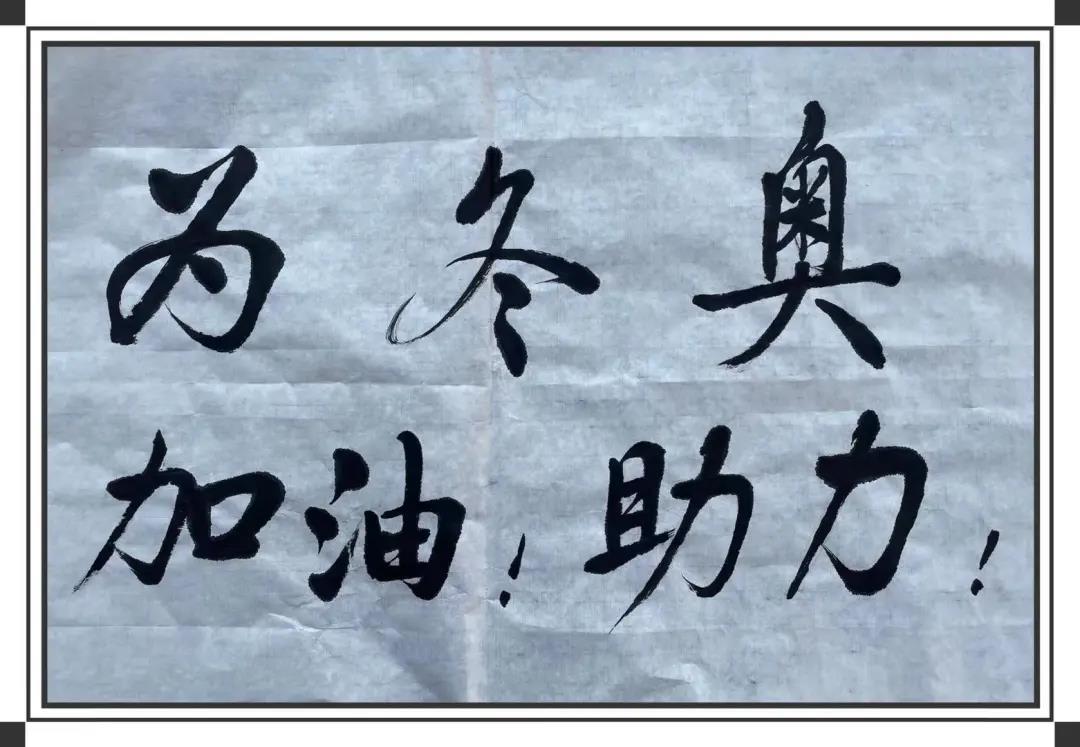 为冬奥
加油！助力！